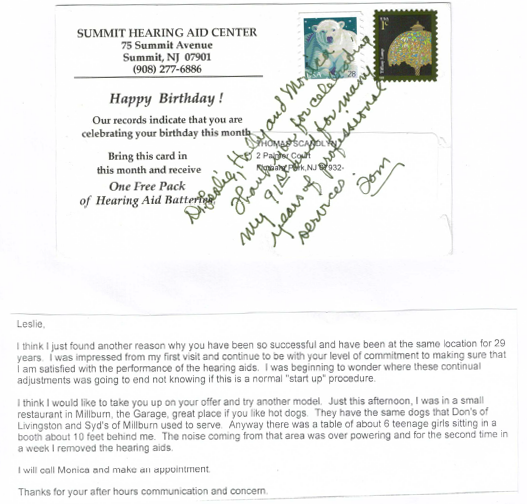 SUMMIT HEARING AID CENTER
75 Summit Avenue
Summit, NJ 07901
(908) 277-6886
Happy Birthday !
Our records indicate that you are
celebrating your birthday this month
Bring this card in
this month and receive
One Free Pack
of Hearing Aid Batteries
USA 28
1¢
THOMAS SCANDLYN
2 Palmer Court
Park, NJ 07932-
Dr Leslie, Holly and Monica
Thank you for celebrating
my 91st and for many
years of professional
services.
Tom
Leslie,
I think I just found another reason why you have been so successful and have been at the same location for 29
years. I was impressed from my first visit and continue to be with your level of commitment to making sure that
I am satisfied with the performance of the hearing aids. I was beginning to wonder where these continual
adjustments was going to end not knowing if this is a normal "start up" procedure.
I think I would like to take you up on your offer and try another model. Just this afternoon, I was in a small
restaurant in Millburn, the Garage, great place if you like hot dogs. They have the same dogs that Don's of
Livingston and Syd's of Millburn used to serve. Anyway there was a table of about 6 teenage girls sitting in a
booth about 10 feet behind me. The noise coming from that area was over powering and for the second time in
a week I removed the hearing aids.
I will call Monica and make an appointment.
Thanks for your after hours communication and concern.